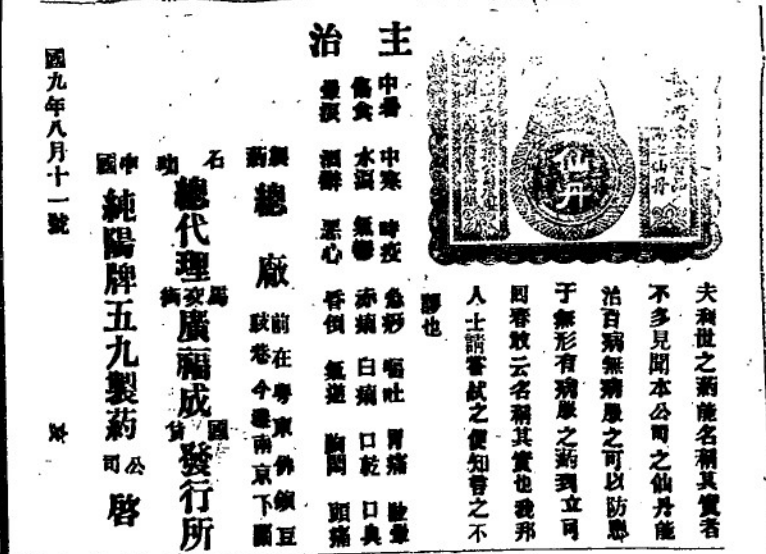 仙丹
之仙丹
夫利世之葯能名稱其實者
不多見聞本公司之仙丹能
治百病無病服之可以防患
于無形有病服之葯到立可
回春敢云名稱其實也我邦
人士請嘗試之便知言之不
謬也
主治
中暑 中寒 時疫 急痧 嘔吐 胃痛 眩暈
傷食 水瀉 氣鬱 赤痢 白痢 口乾 口臭
暈浪 酒醉 惡心 昏倒 氣逆 胸悶 頭痛
製葯總廠 前在粵東佛鎮豆
豉巷今遷南京下關
石叻總代理馬交街廣福成國貨發行所
中國純陽牌五九製葯公司啓
國九年八月十一號